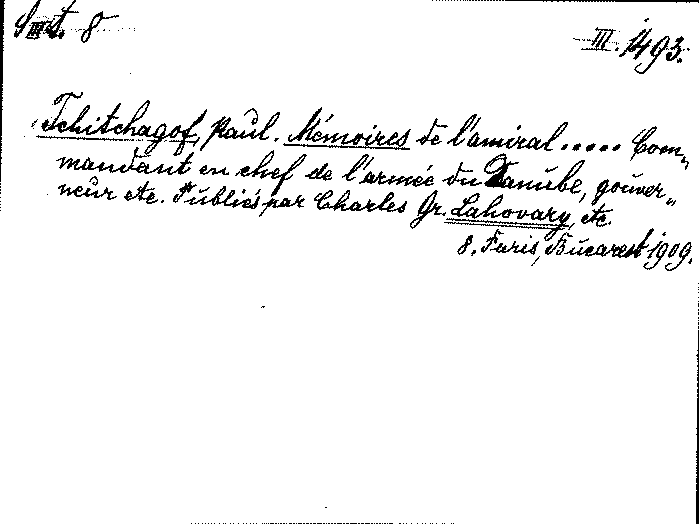 III. 1493.
Tchitchagof, Paul. Mémoires de l'amiral..... Com„
mandant en chef de l'armée du Danube, gouver„
neur etc. Publiés par Charles Gr. Lahovary, etc.
8. Paris, Bucarest 1909.